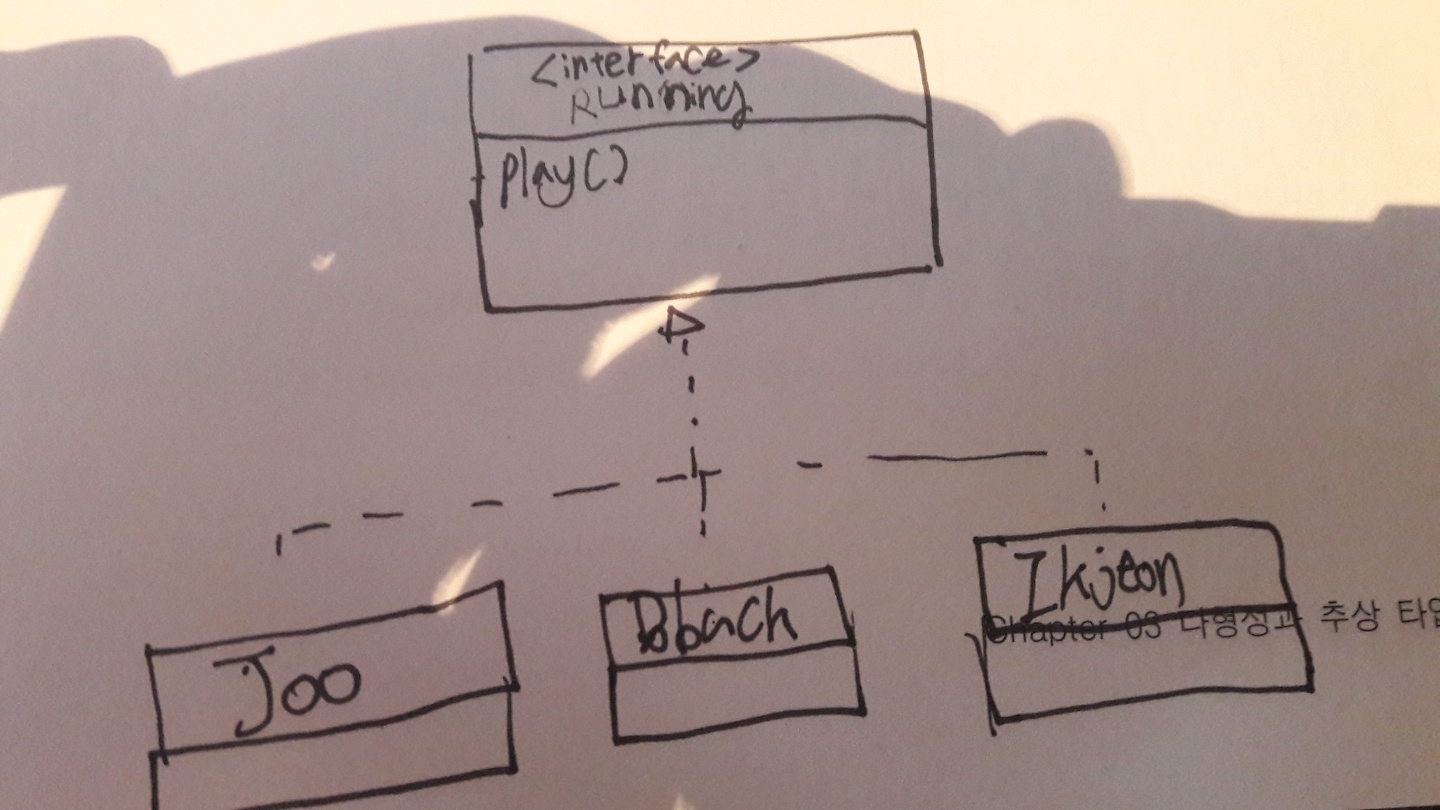 <interface>
Running
play()
Joo
Bbach
Ikjeon
Chapter 03 다형성과 추상 타입